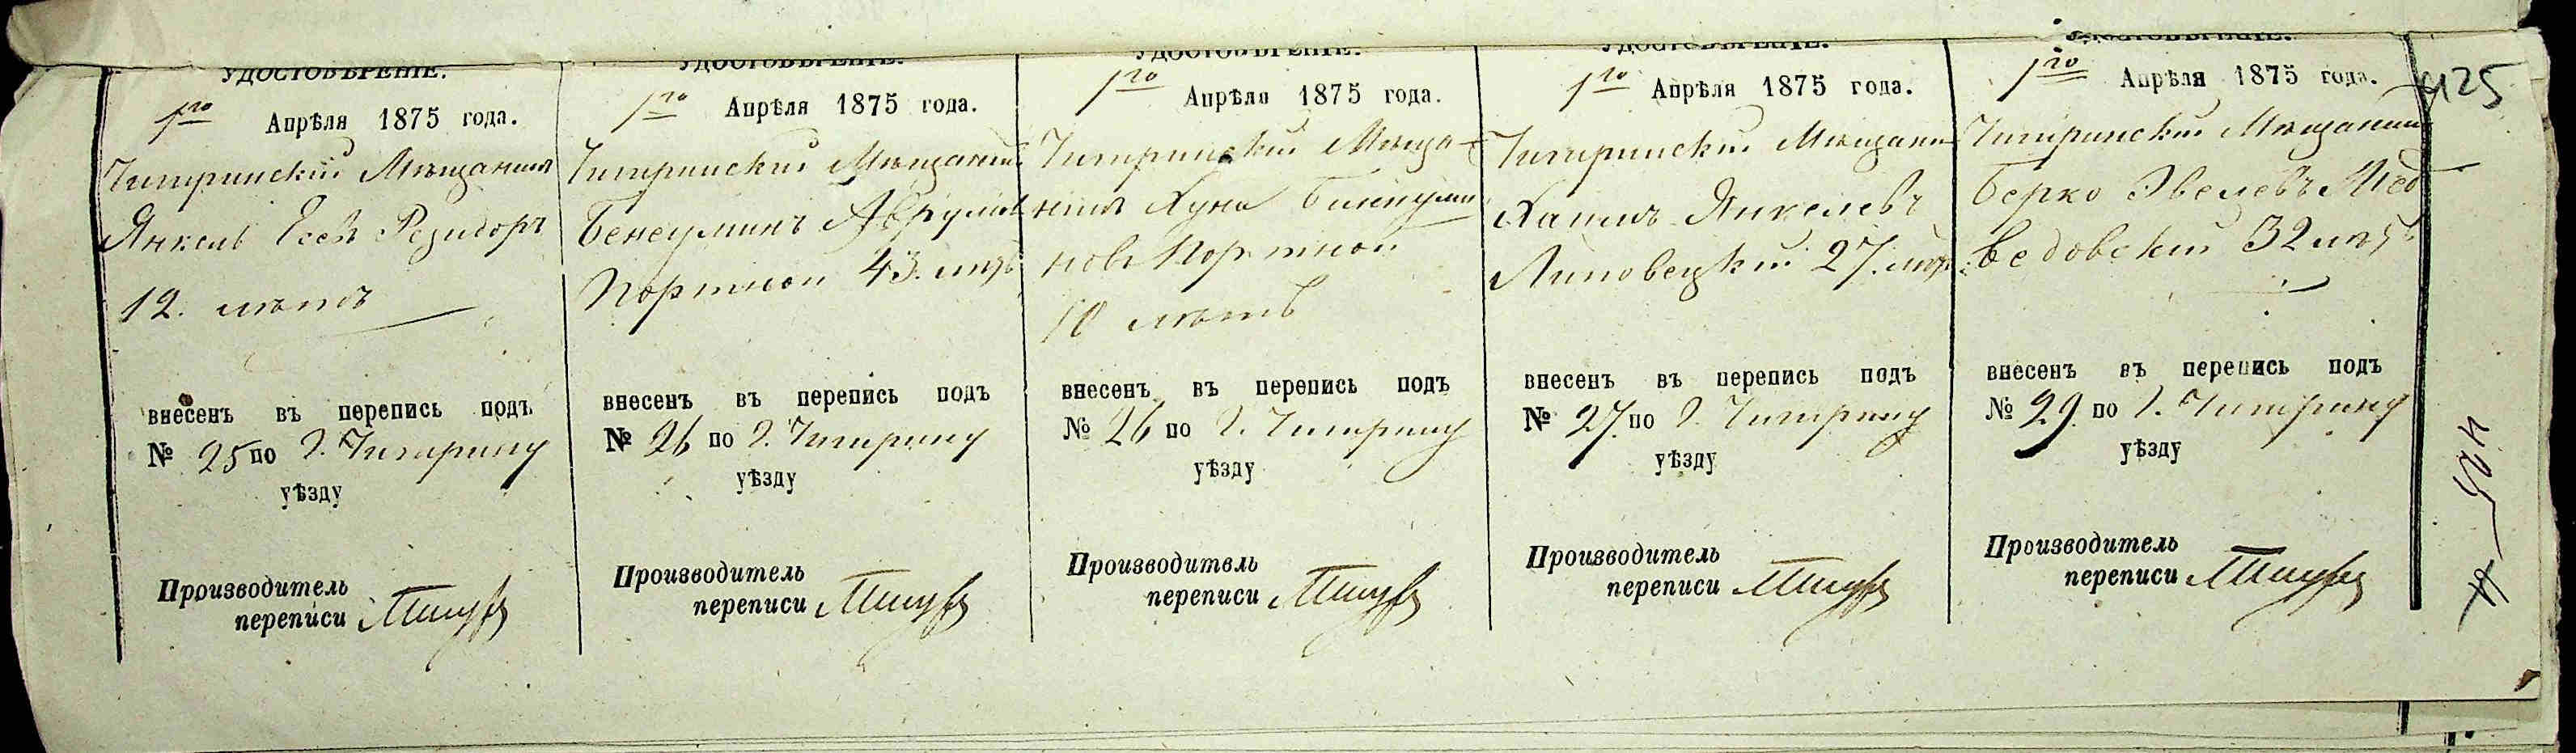 УДОСТОВѢРЕНІЕ.
1го Апрѣля 1875 года.
Чигиринскій Мѣщанинъ
Янкель Есев Резидоръ
12. лѣтъ
внесенъ въ перепись подъ
№ 25 по г. Чигирину
уѣзду
Производитель
переписи
УДОСТОВѢРЕНІЕ.
1го Апрѣля 1875 года.
Чигиринскій Мѣщанинъ
Бенеуминъ Аврумов
Портной 43. лѣтъ
внесенъ въ перепись подъ
№ 26 по г. Чигирину
уѣзду
Производитель
переписи
УДОСТОВѢРЕНІЕ.
1го Апрѣля 1875 года.
Чигиринскій Мѣща-
нинъ Хуна
новъ Портной
10 лѣтъ
внесенъ въ перепись подъ
№ 26 по г. Чигирину
уѣзду
Производитель
переписи
УДОСТОВѢРЕНІЕ.
1го Апрѣля 1875 года.
Чигиринскій Мѣщанин
Хаимъ Янкелевъ
Липовецкій 27. лѣтъ
внесенъ въ перепись подъ
№ 27. по г. Чигирину
уѣзду
Производитель
переписи
УДОСТОВѢРЕНІЕ.
1го Апрѣля 1875 года.
Чигиринскій Мѣщанин
Берко Эвелевъ Мед
ведовскій 32 лѣтъ
внесенъ въ перепись подъ
№ 29. по г. Чигирину
уѣзду
Производитель
переписи
425